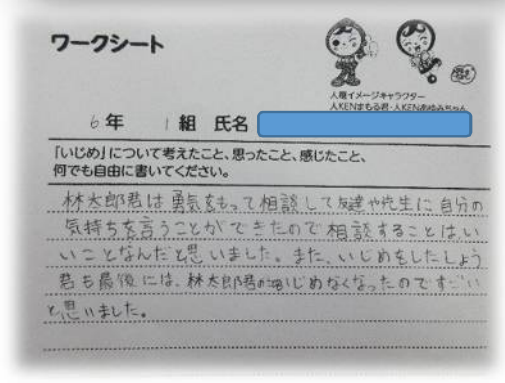 ワークシート
人権イメージキャラクター
人KENまもる君・人KENあゆみちゃん
6年 1組 氏名
「いじめ」について考えたこと、思ったこと、感じたこと、
何でも自由に書いてください。
林太郎君は勇気をもって相談して友達や先生に自分の
気持ちを言うことができたので相談することはい
いことなんだと思いました。また、いじめをしたしょう
君も最後には、林太郎君いじめなくなったのですごい
と思いました。